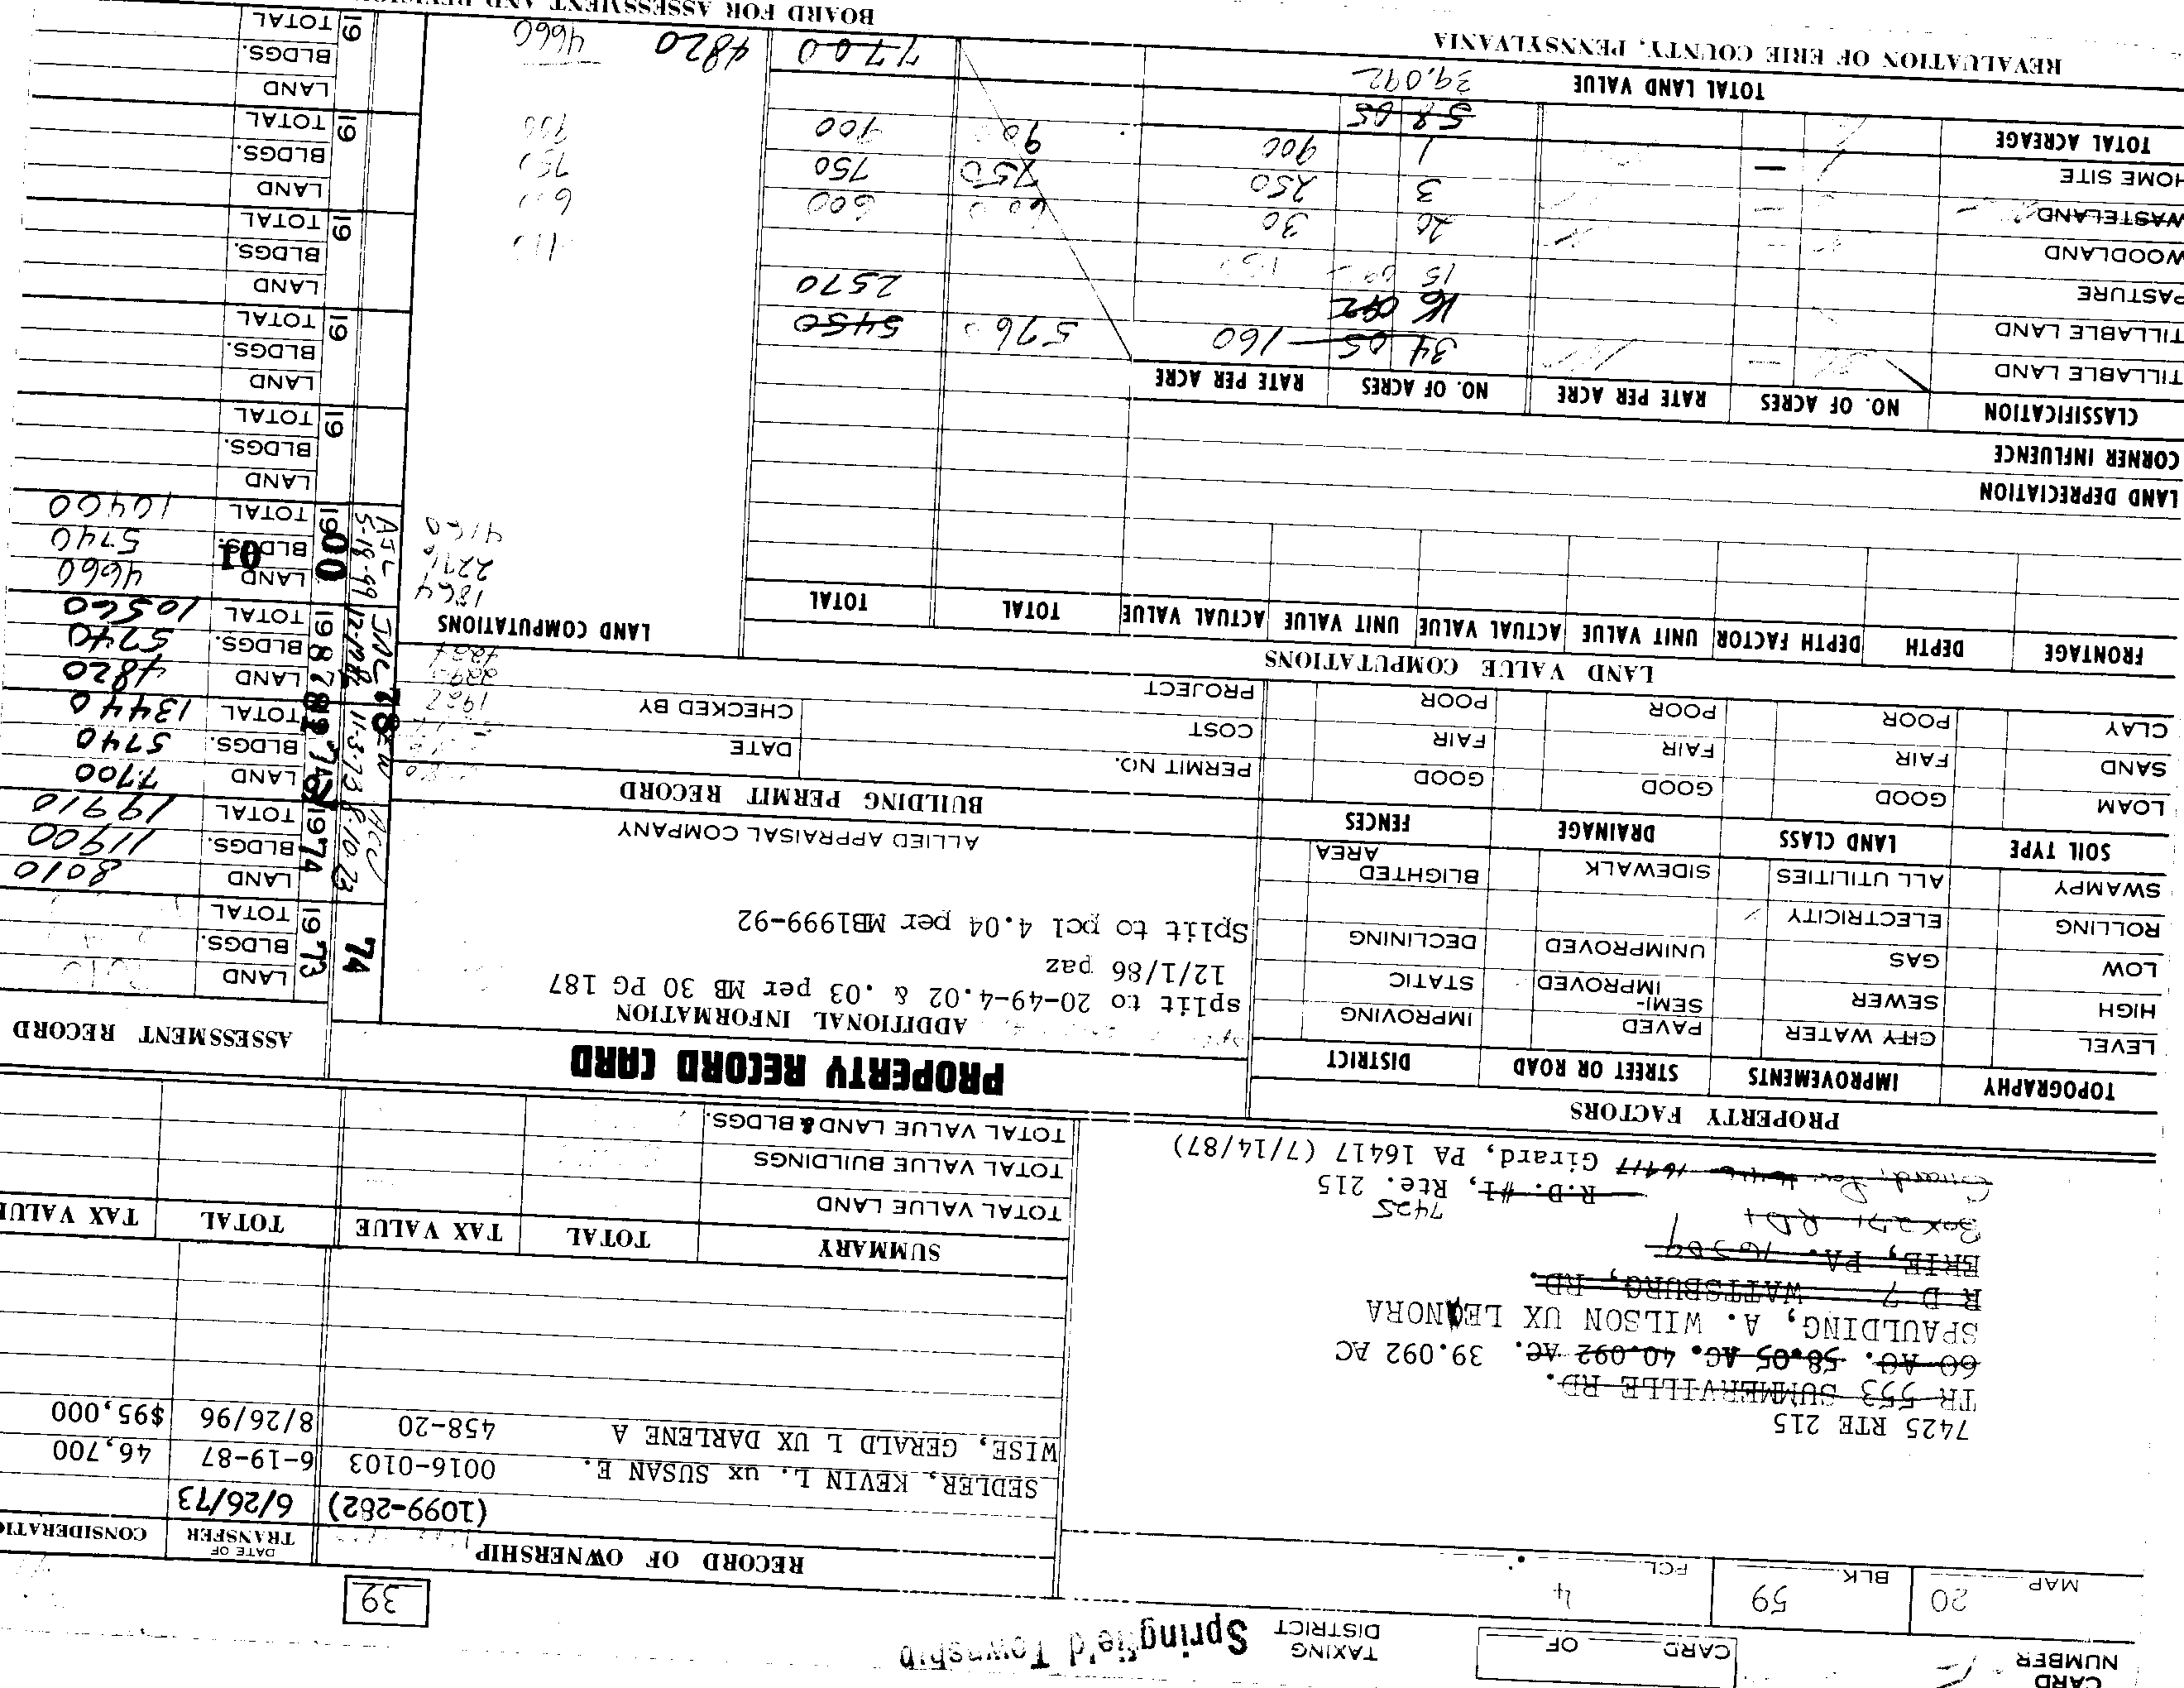 CARD NUMBER
CARD OF
TAXING DISTRICT Springfield Township
39
MAP 20 BLK. 59 PCL. 4
RECORD OF OWNERSHIP DATE OF TRANSFER CONSIDERATIO
(1099-282) 6/26/73
SEDLER, KEVIN L. ux SUSAN E. 0016-0103 6-19-87 46,700
WISE, GERALD L UX DARLENE A 458-20 8/26/96 $95,000
7425 RTE 215
TR 553 SUMMERVILLE RD.
60 AC. 58.05 AC. 40.092 AC. 39.092 AC
SPAULDING, A. WILSON UX LEANORA
R D 7 WATTSBURG, RD.
ERIE, PA. 16509
Box 271 RD1
7425
R.D. #1, Rte. 215
Girard, Pa 16417 Girard, PA 16417 (7/14/87)
SUMMARY TOTAL TAX VALUE TOTAL TAX VALUE
TOTAL VALUE LAND
TOTAL VALUE BUILDINGS
TOTAL VALUE LAND & BLDGS.
PROPERTY FACTORS
TOPOGRAPHY IMPROVEMENTS STREET OR ROAD DISTRICT
LEVEL CITY WATER PAVED IMPROVING
HIGH SEWER SEMI-IMPROVED STATIC
LOW GAS UNIMPROVED DECLINING
ROLLING ELECTRICITY
SWAMPY ALL UTILITIES SIDEWALK BLIGHTED AREA
SOIL TYPE LAND CLASS DRAINAGE FENCES
LOAM GOOD GOOD GOOD
SAND FAIR FAIR FAIR
CLAY POOR POOR POOR
PROPERTY RECORD CARD
ADDITIONAL INFORMATION
split to 20-49-4-4.02 & .03 per MB 30 PG 187
12/1/86 paz
Split to pcl 4.04 per MB1999-92
ALLIED APPRAISAL COMPANY
BUILDING PERMIT RECORD
PERMIT NO. DATE
COST CHECKED BY
PROJECT
ASSESSMENT RECORD
74
1973 LAND
BLDGS.
TOTAL
1974 LAND 8010
BLDGS. 11900
TOTAL 19910
8-10-73
LAND 7700
BLDGS. 5740
TOTAL 13440
11-3-73
78
1987 LAND 4820
BLDGS. 5740
TOTAL 10560
1900 01 LAND 4660
BLDGS. 5740
TOTAL 10400
AJL 5-19-99
19 LAND
BLDGS.
TOTAL
19 LAND
BLDGS.
TOTAL
19 LAND
BLDGS.
TOTAL
19 LAND
BLDGS.
TOTAL
19 LAND
BLDGS.
TOTAL
LAND VALUE COMPUTATIONS
FRONTAGE DEPTH DEPTH FACTOR UNIT VALUE ACTUAL VALUE UNIT VALUE ACTUAL VALUE TOTAL TOTAL LAND COMPUTATIONS
1864
2296
4160
LAND DEPRECIATION
CORNER INFLUENCE
CLASSIFICATION NO. OF ACRES RATE PER ACRE NO. OF ACRES RATE PER ACRE
TILLABLE LAND 34 05 160 5450
TILLABLE LAND 16 092 2570
PASTURE 15
WOODLAND 20 30 600 600
WASTELAND 3 250 750 750 750
HOME SITE 1 900 900 900
TOTAL ACREAGE 58 05
39.092
TOTAL LAND VALUE 7700 4820 4660
REVALUATION OF ERIE COUNTY, PENNSYLVANIA
BOARD FOR ASSESSMENT AND REVISION